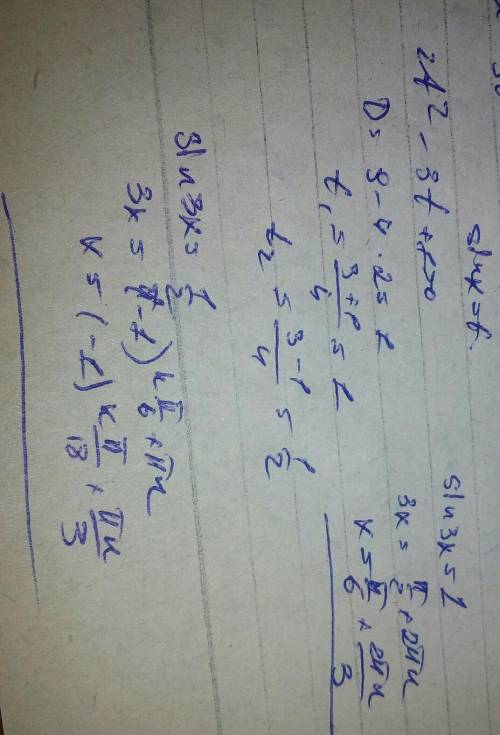 sin x = t.
2t² - 3t + 1 = 0
D = 9 - 4 · 2 = 1
t₁ = (3+1)/4 = 1
t₂ = (3-1)/4 = 1/2
sin 3x = 1
3x = π/2 + 2πn
x = π/6 + 2πn/3
sin 3x = 1/2
3x = (-1)ⁿ π/6 + πn
x = (-1)ⁿ π/18 + πn/3